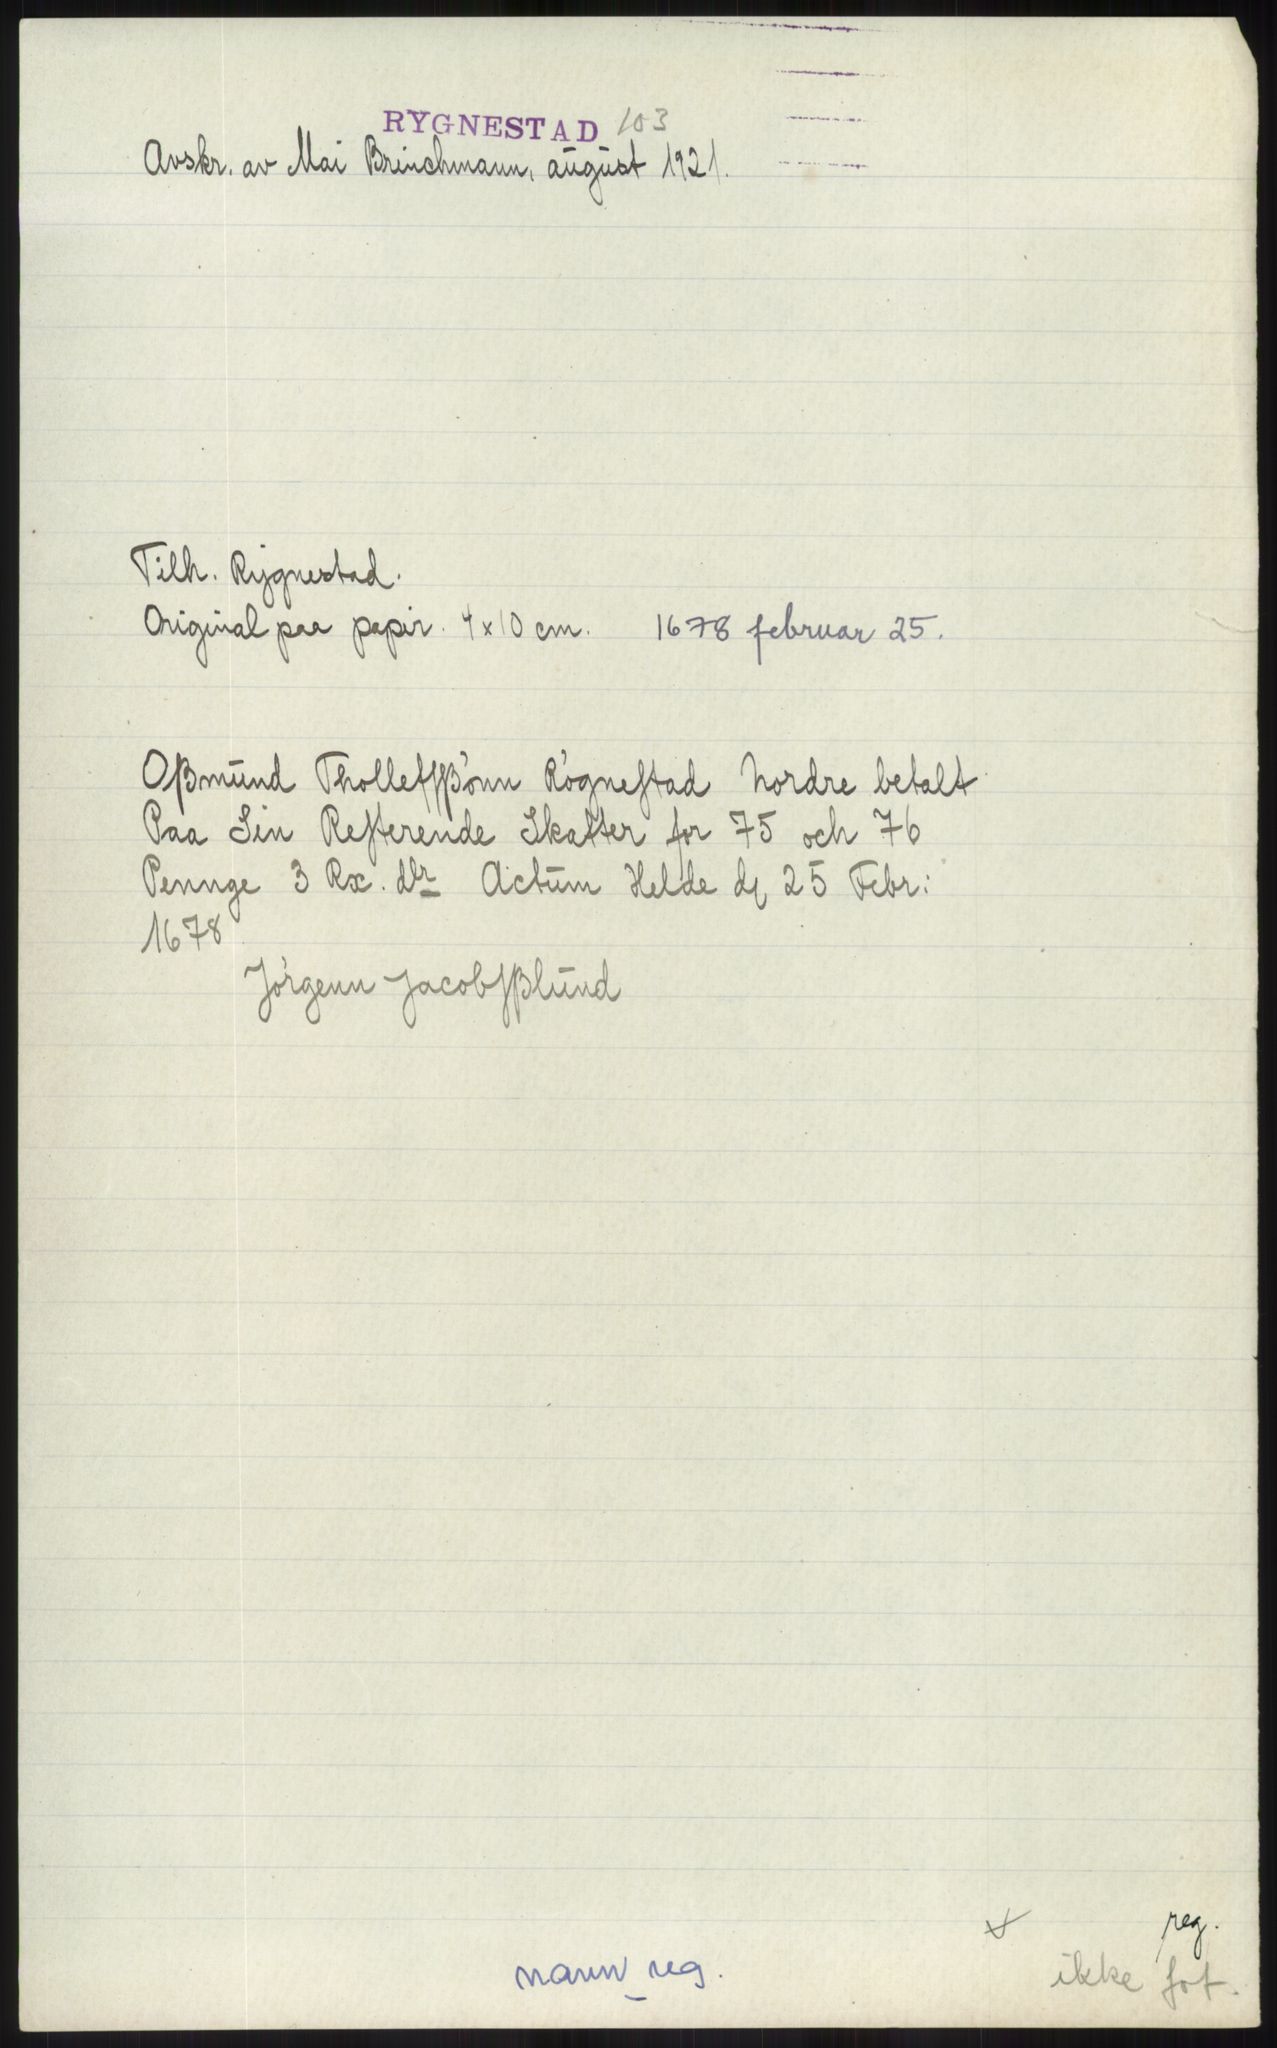 RYGNESTAD 103
Avskr. av Mai Brinchmann, august 1921.
Tilh. Rygnestad.
Original paa papir. 4x10 cm. 1678 februar 25.
Oßmund Thollefsßønn Røgnestad Nordre betalt
Paa Sin Resterende Skatter for 75 och 76
Pennge 3 Rx. dlr Actum Helde dj 25 Febr:
1678
Jørgenn Jacobsßlund
reg.
navn reg.
ikke fot.